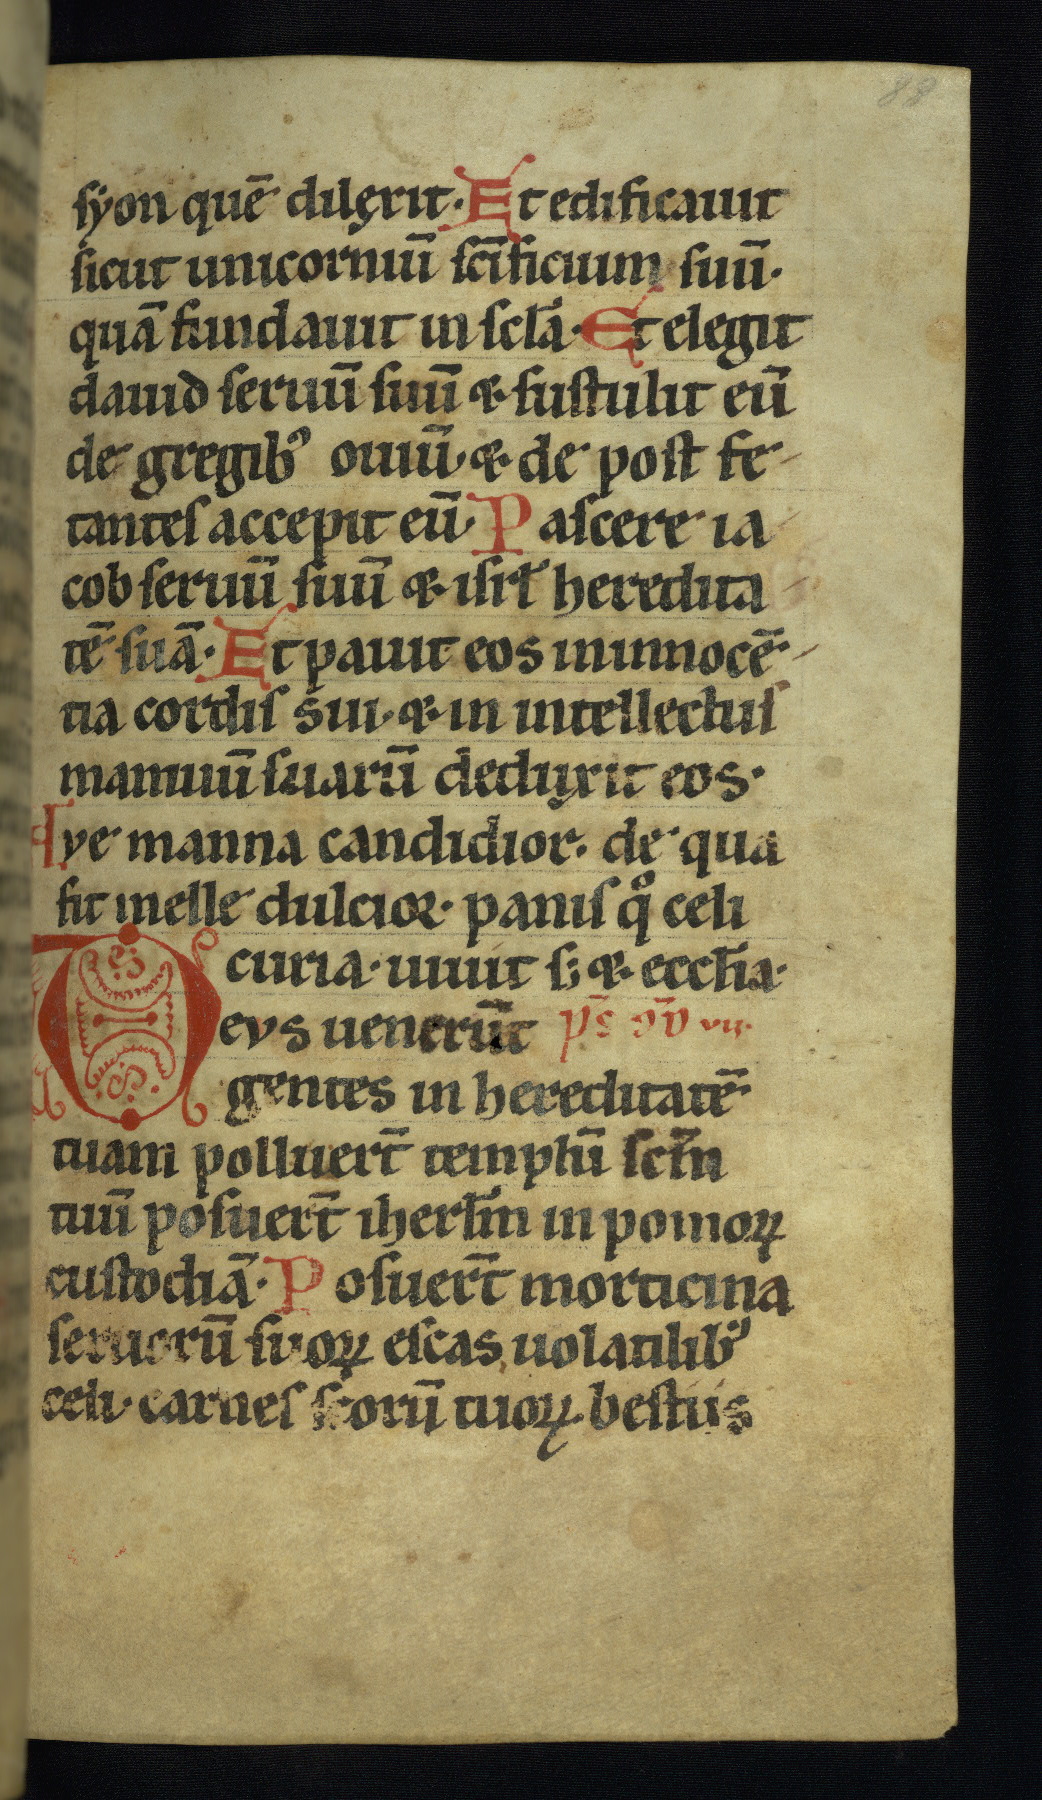 88
syon quē dilexit. Et edificauit
sicut unicorniū sc̄ificium suū.
quā fundauit in scl̄a. Et elegit
dauid seruū suū & sustulit eū
de gregibꝰ ouiū & de post fe
tantes accepit eū. Pascere ia
cob seruū suū & isrł heredita
tē suā. Et pauit eos in innocē
tia cordis sui. & in intellectus
manuū suarū deduxit eos.
ye manna candidior. de qua
fit melle dulcior. panis qͦ celi
curia. uiuit s; & eccl̄ia.
Deus uenerūt p̄s
gentes in hereditatē
tuam polluert̄ templū scm̄
tuū posuert̄ iherl̄m in pomoꝝ
custodiā. Posuert̄ morticina
seruorū suoꝝ escas uolatilibꝰ
celi. carnes sc̄orū tuoꝝ. bestiis